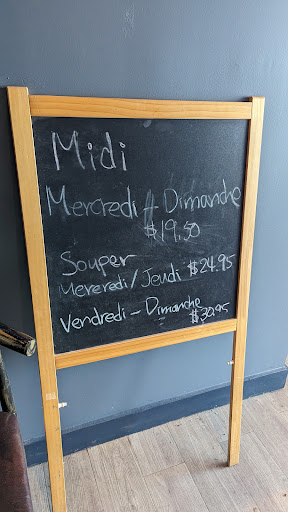 Midi
Mercredi - Dimanche
$19.50
Souper
Mereredi/Jeudi $24.95
Vendredi - Dimanche
$30.95